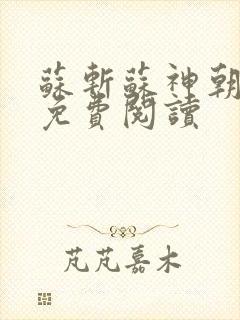 蘇斬蘇神朝
免費閱讀
芃芃嘉木